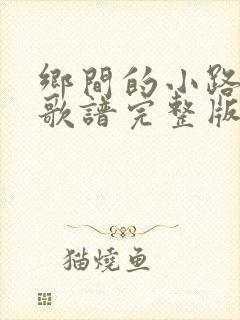 鄉間的小路
歌譜完整版
猫燒鱼